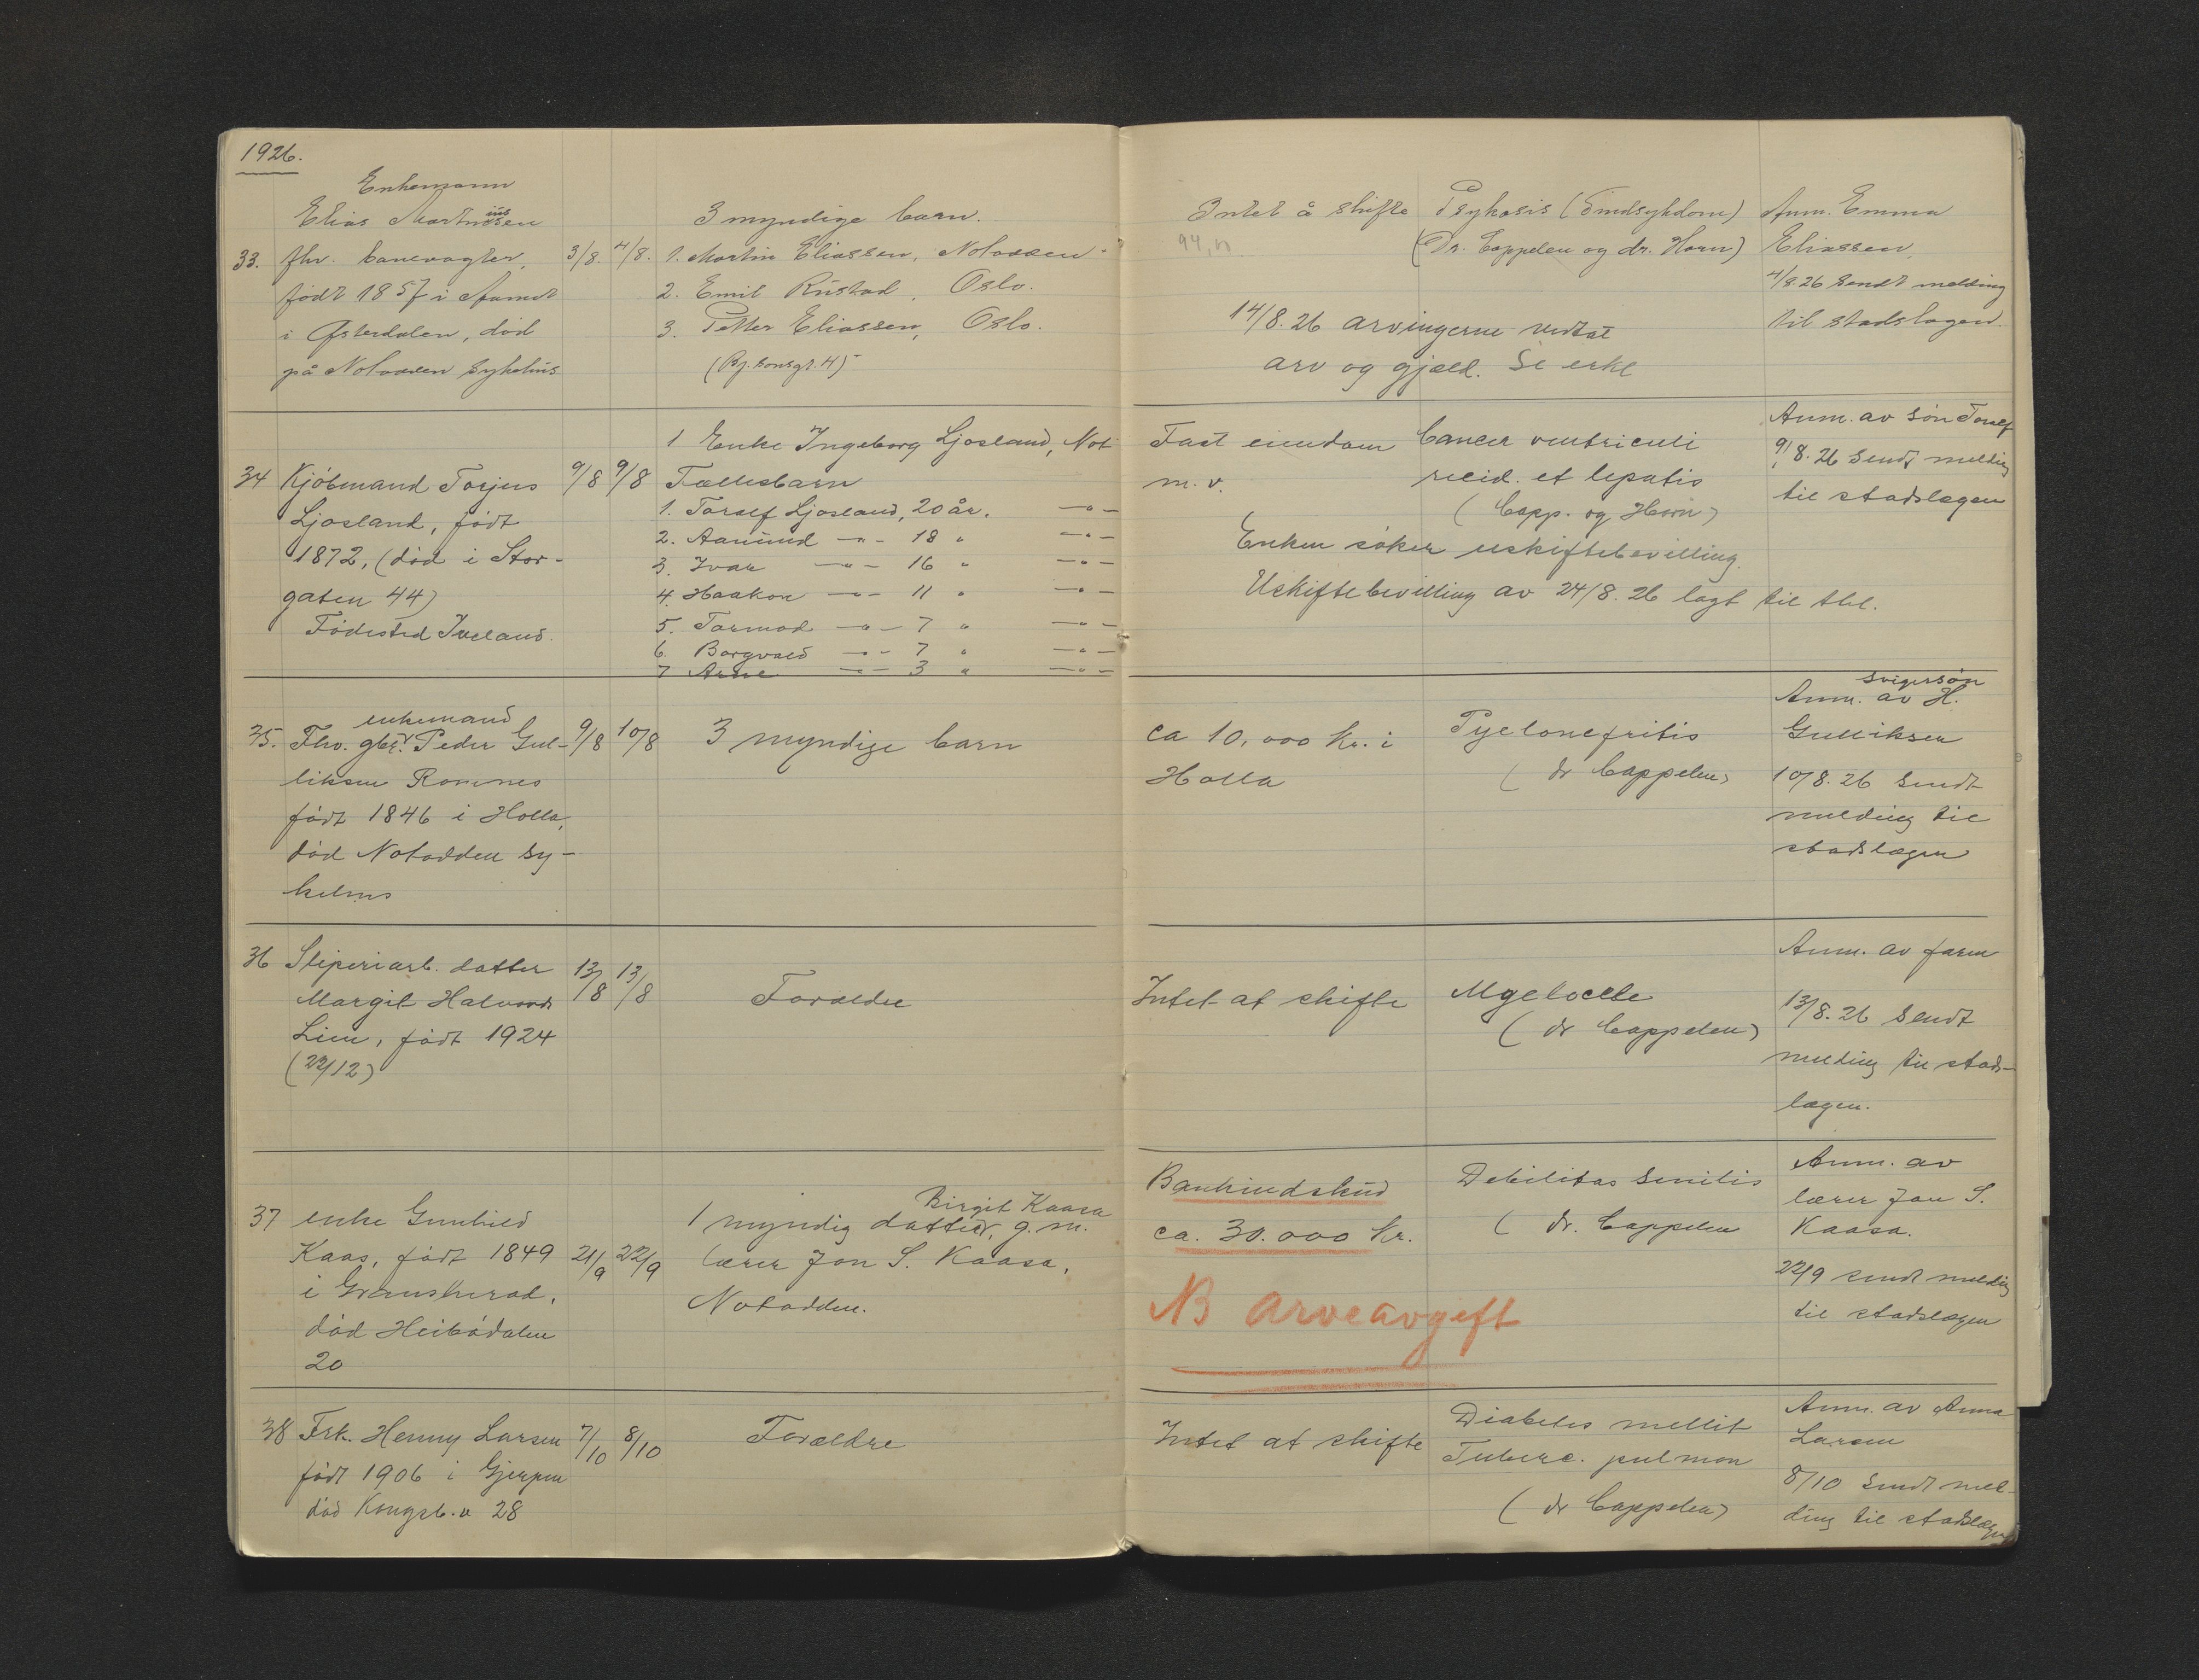 1926.
Enkemann
Elias Martinussen
33. fhv. banevogter, 3/8. 4/8.
født 1857 i Aamot
i Østerdalen, död
på Notodden sykehus
3 myndige barn.
1. Martin Eliassen, Notodden
2. Emil Rustad, Oslo.
3. Petter Eliassen, Oslo.
(Bj.sonsgt. 4)
Intet å skifte
94, n
14/8. 26 arvingerne vedtat
arv og gjæld. Se erkl
Psykosis (Sindsykdom)
(Dr. Cappelen og dr. Horn)
Anm. Emma
Eliassen,
4/8.26 Sendt melding
til stadslægen.
34 Kjöbmand Torjus 9/8 9/8
Ljosland, födt
1872, (död i Stor-
gaten 44)
Födested Iveland.
1 Enke Ingeborg Ljosland, Not
Fællesbarn
1. Toralf Ljosland, 20 år. -"-
2. Aamund -"- 18 " -"-
3. Ivar -"- 16 " -"-
4. Haakon -"- 11 " -"-
5. Tormod -"- 7 " -"-
6. Borgvald -"- 7 " -"-
7 Arne -"- 3 " -"-
Fast eiendom
m. v.
Cancer ventriculi
recid. et hepatis
(Capp. og Horn)
Enken söker uskiftebevilling.
Uskiftebevilling av 24/8. 26 lagt til tkl.
Anm. av sön Toralf
9/8. 26 Sendt melding
til stadslægen
enkemand
35. Fhv. gbr. Peder Gul- 9/8 10/8
liksen Romnes
födt 1846 i Holla,
död Notodden sy-
kehus
3 myndige barn
ca 10,000 kr. i
Holla
Pyelonefritis
(dr Cappelen)
svigersön
Anm. av H.
Gulliksen
10/8. 26 Sendt
melding til
stadslægen
36 Sliperiarb. datter 13/8 13/8
Margit Halvords
Lien, födt 1924
(22/12)
Forældre
Intet at skifte
Myelocele
(dr Cappelen)
Anm. av faren
13/8. 26 Sendt
melding til stads-
lægen.
37 enke Gunhild
Kaas, födt 1849 21/9 22/9
i Gransherad.
död Heibödalen
20
Birgit Kaasa
1 myndig datter, g. m.
lærer Jon S. Kaasa,
Notodden.
Bankindskud
ca. 30.000 kr.
NB arveavgift
Debilitas senilis
(dr. Cappelen
Anm. av
lærer Jon S.
Kaasa.
22/9 sendt melding
til stadslægen
38 Frk. Henny Larsen 7/10 8/10
födt 1906 i Gjerpen
död Kongsb.v 28
Forældre
Intet at skifte
Diabetes mellit
Tuberc. pulmon
(dr Cappelen)
Anm. av Anna
Larsen
8/10 Sendt mel-
ding til stadslægen